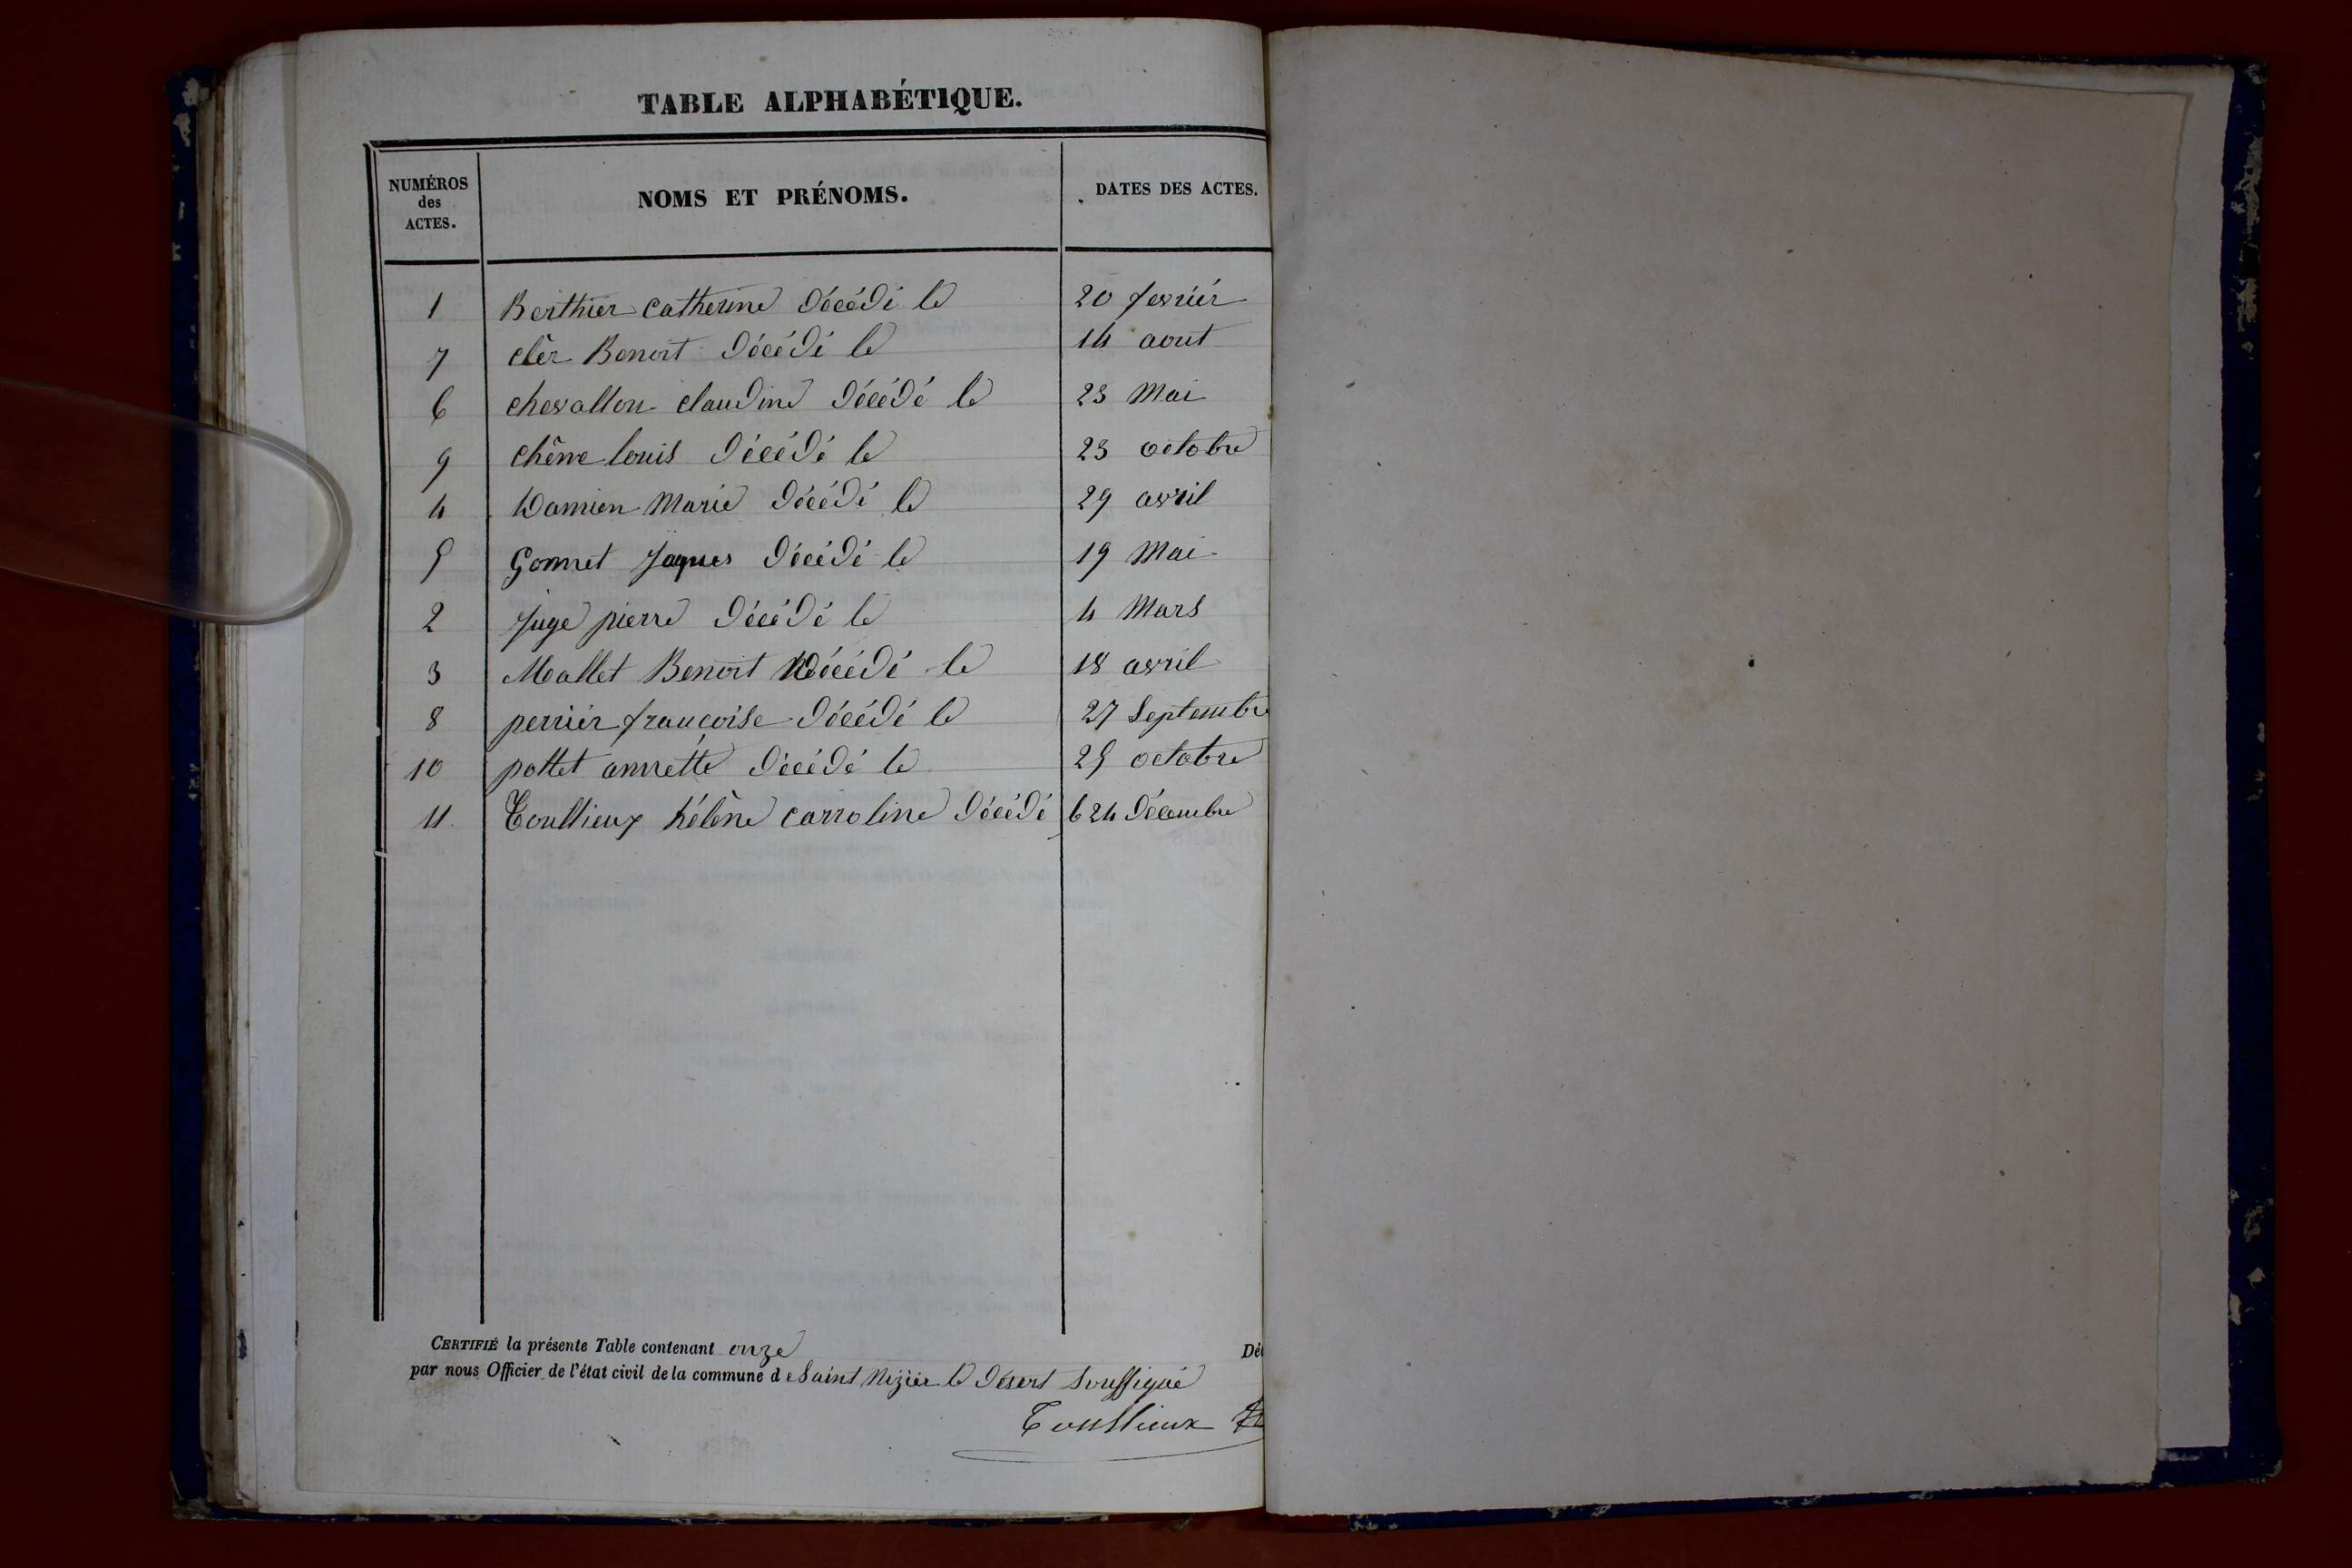 TABLE ALPHABÉTIQUE.
NUMÉROS des ACTES. NOMS ET PRÉNOMS. DATES DES ACTES.
1 Berthier catherine décédé le 20 fevriér
7 clêr Benoit décédé le 14 aout
6 chevallon claudine décédé le 23 Mai
9 chêne louis décédé le 23 octobre
4 Damien Marie décédé le 29 avril
5 Gonnet Jaques décédé le 19 Mai
2 Juge pierre décédé le 4 Mars
3 Mallet Benoit décédé le 18 avril
8 perriér françoise décédé le 27 Septembre
10 pottet annette décédé le 25 octobre
11 Toullieux hélène carroline décédé le 24 décembre
CERTIFIÉ la présente Table contenant onze Dé
par nous Officier de l'état civil de la commune de Saint Niziér le désert soussigné
Toullieux